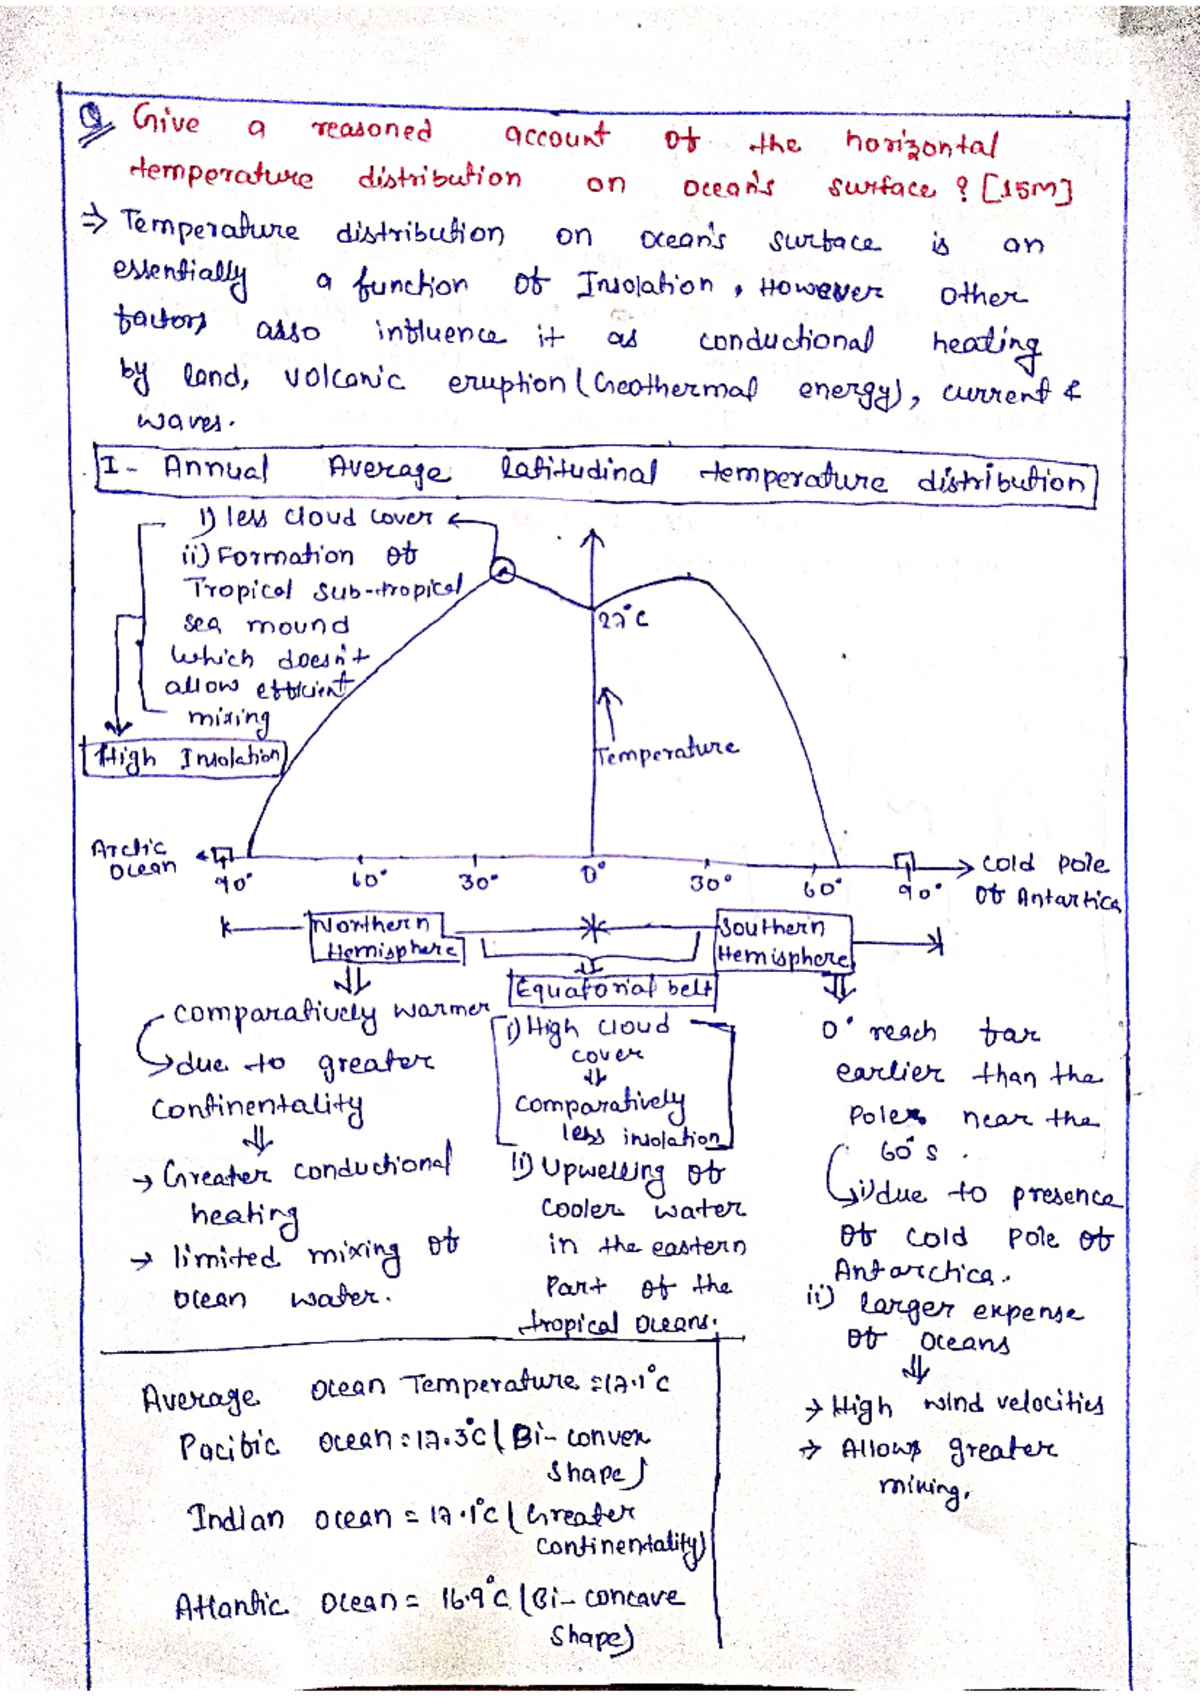 Q. Give a reasoned account of the horizontal
temperature distribution on ocean's surface ? [15M]
⇒ Temperature distribution on ocean's surface is an
essentially a function of Insolation, However other
factors asso influence it as conductional heating
by land, volcanic eruption (Geothermal energy), current &
waves.
I- Annual Average latitudinal temperature distribution
i) less cloud cover
ii) Formation of
Tropical sub-tropical
sea mound
which doesn't
allow efficient
mixing
High Insolation
27°C
Temperature
Arctic
Ocean
90° 60° 30° 0° 30° 60° 90°
cold pole
of Antartica
Northern
Hemisphere
Southern
Hemisphere
Equatorial belt
comparatively warmer
due to greater
continentality
⇓
→ Greater conductional
heating
→ limited mixing of
ocean water.
i) High cloud
cover
⇓
comparatively
less insolation
ii) Upwelling of
cooler water
in the eastern
Part of the
tropical oceans.
0° reach far
earlier than the
Poles near the
60°S.
i) due to presence
of cold pole of
Antarctica.
ii) larger expense
of oceans
⇓
→ High wind velocities
→ Allows greater
mixing.
Average ocean Temperature = 17.1°C
Pacific ocean = 17.3°C (Bi-convex
shape)
Indian ocean = 17.1°C (Greater
continentality)
Atlantic Ocean = 16.9°C (Bi-concave
shape)